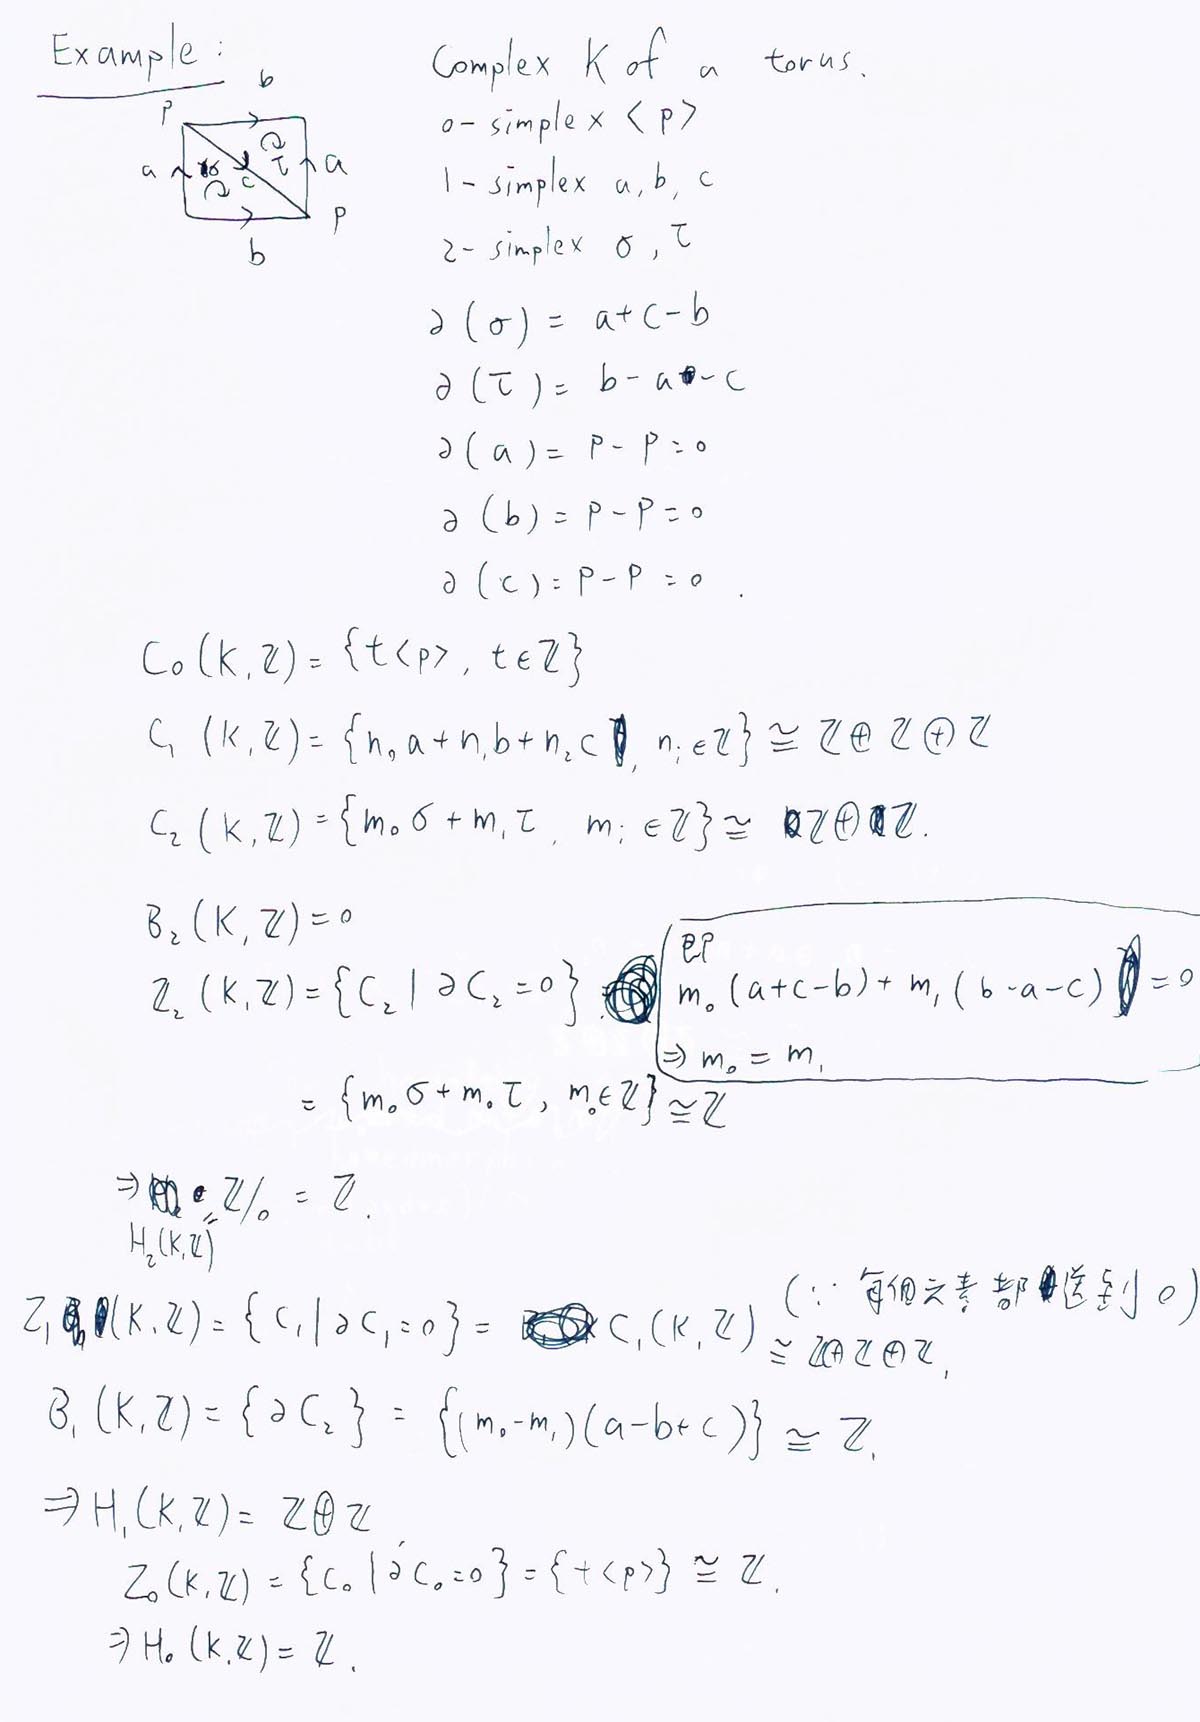 Example:
Complex K of a torus.
b
P
a
σ
c
τ
a
P
b
0-simplex <p>
1-simplex a, b, c
2-simplex σ, τ
∂(σ) = a+c-b
∂(τ) = b-a-c
∂(a) = P-P=0
∂(b) = P-P=0
∂(c) = P-P=0.
C₀(K,ℤ) = {t<p>, t∈ℤ}
C₁(K,ℤ) = {n₀a+n₁b+n₂c, nᵢ∈ℤ} ≅ ℤ⊕ℤ⊕ℤ
C₂(K,ℤ) = {m₀σ+m₁τ, mᵢ∈ℤ} ≅ ℤ⊕ℤ.
B₂(K,ℤ)=0
Z₂(K,ℤ) = {C₂|∂C₂=0}
即
m₀(a+c-b)+m₁(b-a-c)=0
⇒ m₀=m₁
= {m₀σ+m₀τ, m₀∈ℤ} ≅ ℤ
⇒ ℤ/0 = ℤ.
=
H₂(K,ℤ)
Z₁(K,ℤ) = {C₁|∂C₁=0} = C₁(K,ℤ) (∵每個元素都送到0)
≅ ℤ⊕ℤ⊕ℤ.
B₁(K,ℤ) = {∂C₂} = {(m₀-m₁)(a-b+c)} ≅ ℤ.
⇒ H₁(K,ℤ) = ℤ⊕ℤ
Z₀(K,ℤ) = {C₀|∂C₀=0} = {t<p>} ≅ ℤ.
⇒ H₀(K,ℤ) = ℤ.